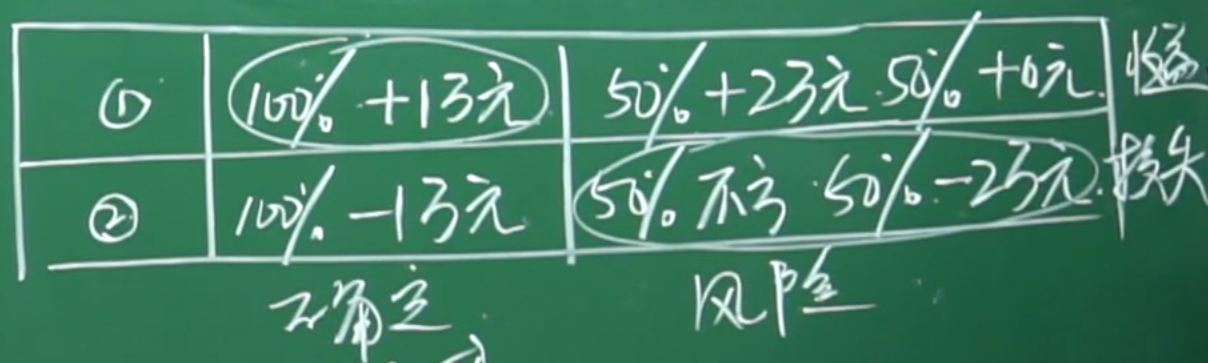 ① 100% +1万元 50% +2万元. 50% +0元. 收益
② 100% -1万元 50% 不亏 · 50% -2万元. 损失
确定 风险